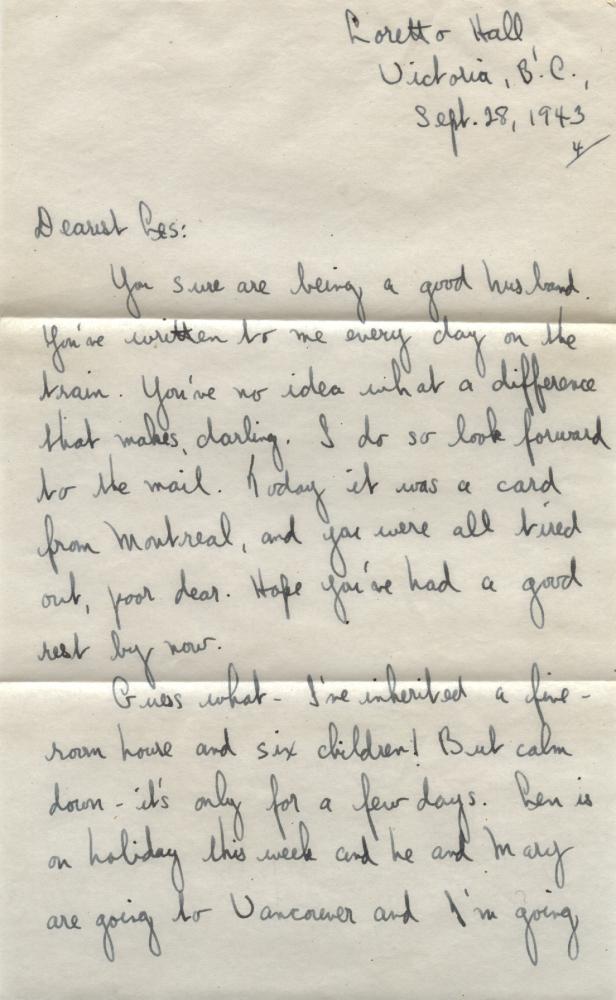 Loretto Hall
Victoria, B.C.,
Sept. 28, 1943
4
Dearest Les:
You sure are being a good husband.
You've written to me every day on the
train. You've no idea what a difference
that makes, darling. I do so look forward
to the mail. Today it was a card
from Montreal, and you were all tired
out, poor dear. Hope you've had a good
rest by now.
Guess what - I've inherited a five-
room house and six children! But calm
down - it's only for a few days. Len is
on holiday this week and he and Mary
are going to Vancouver and I'm going